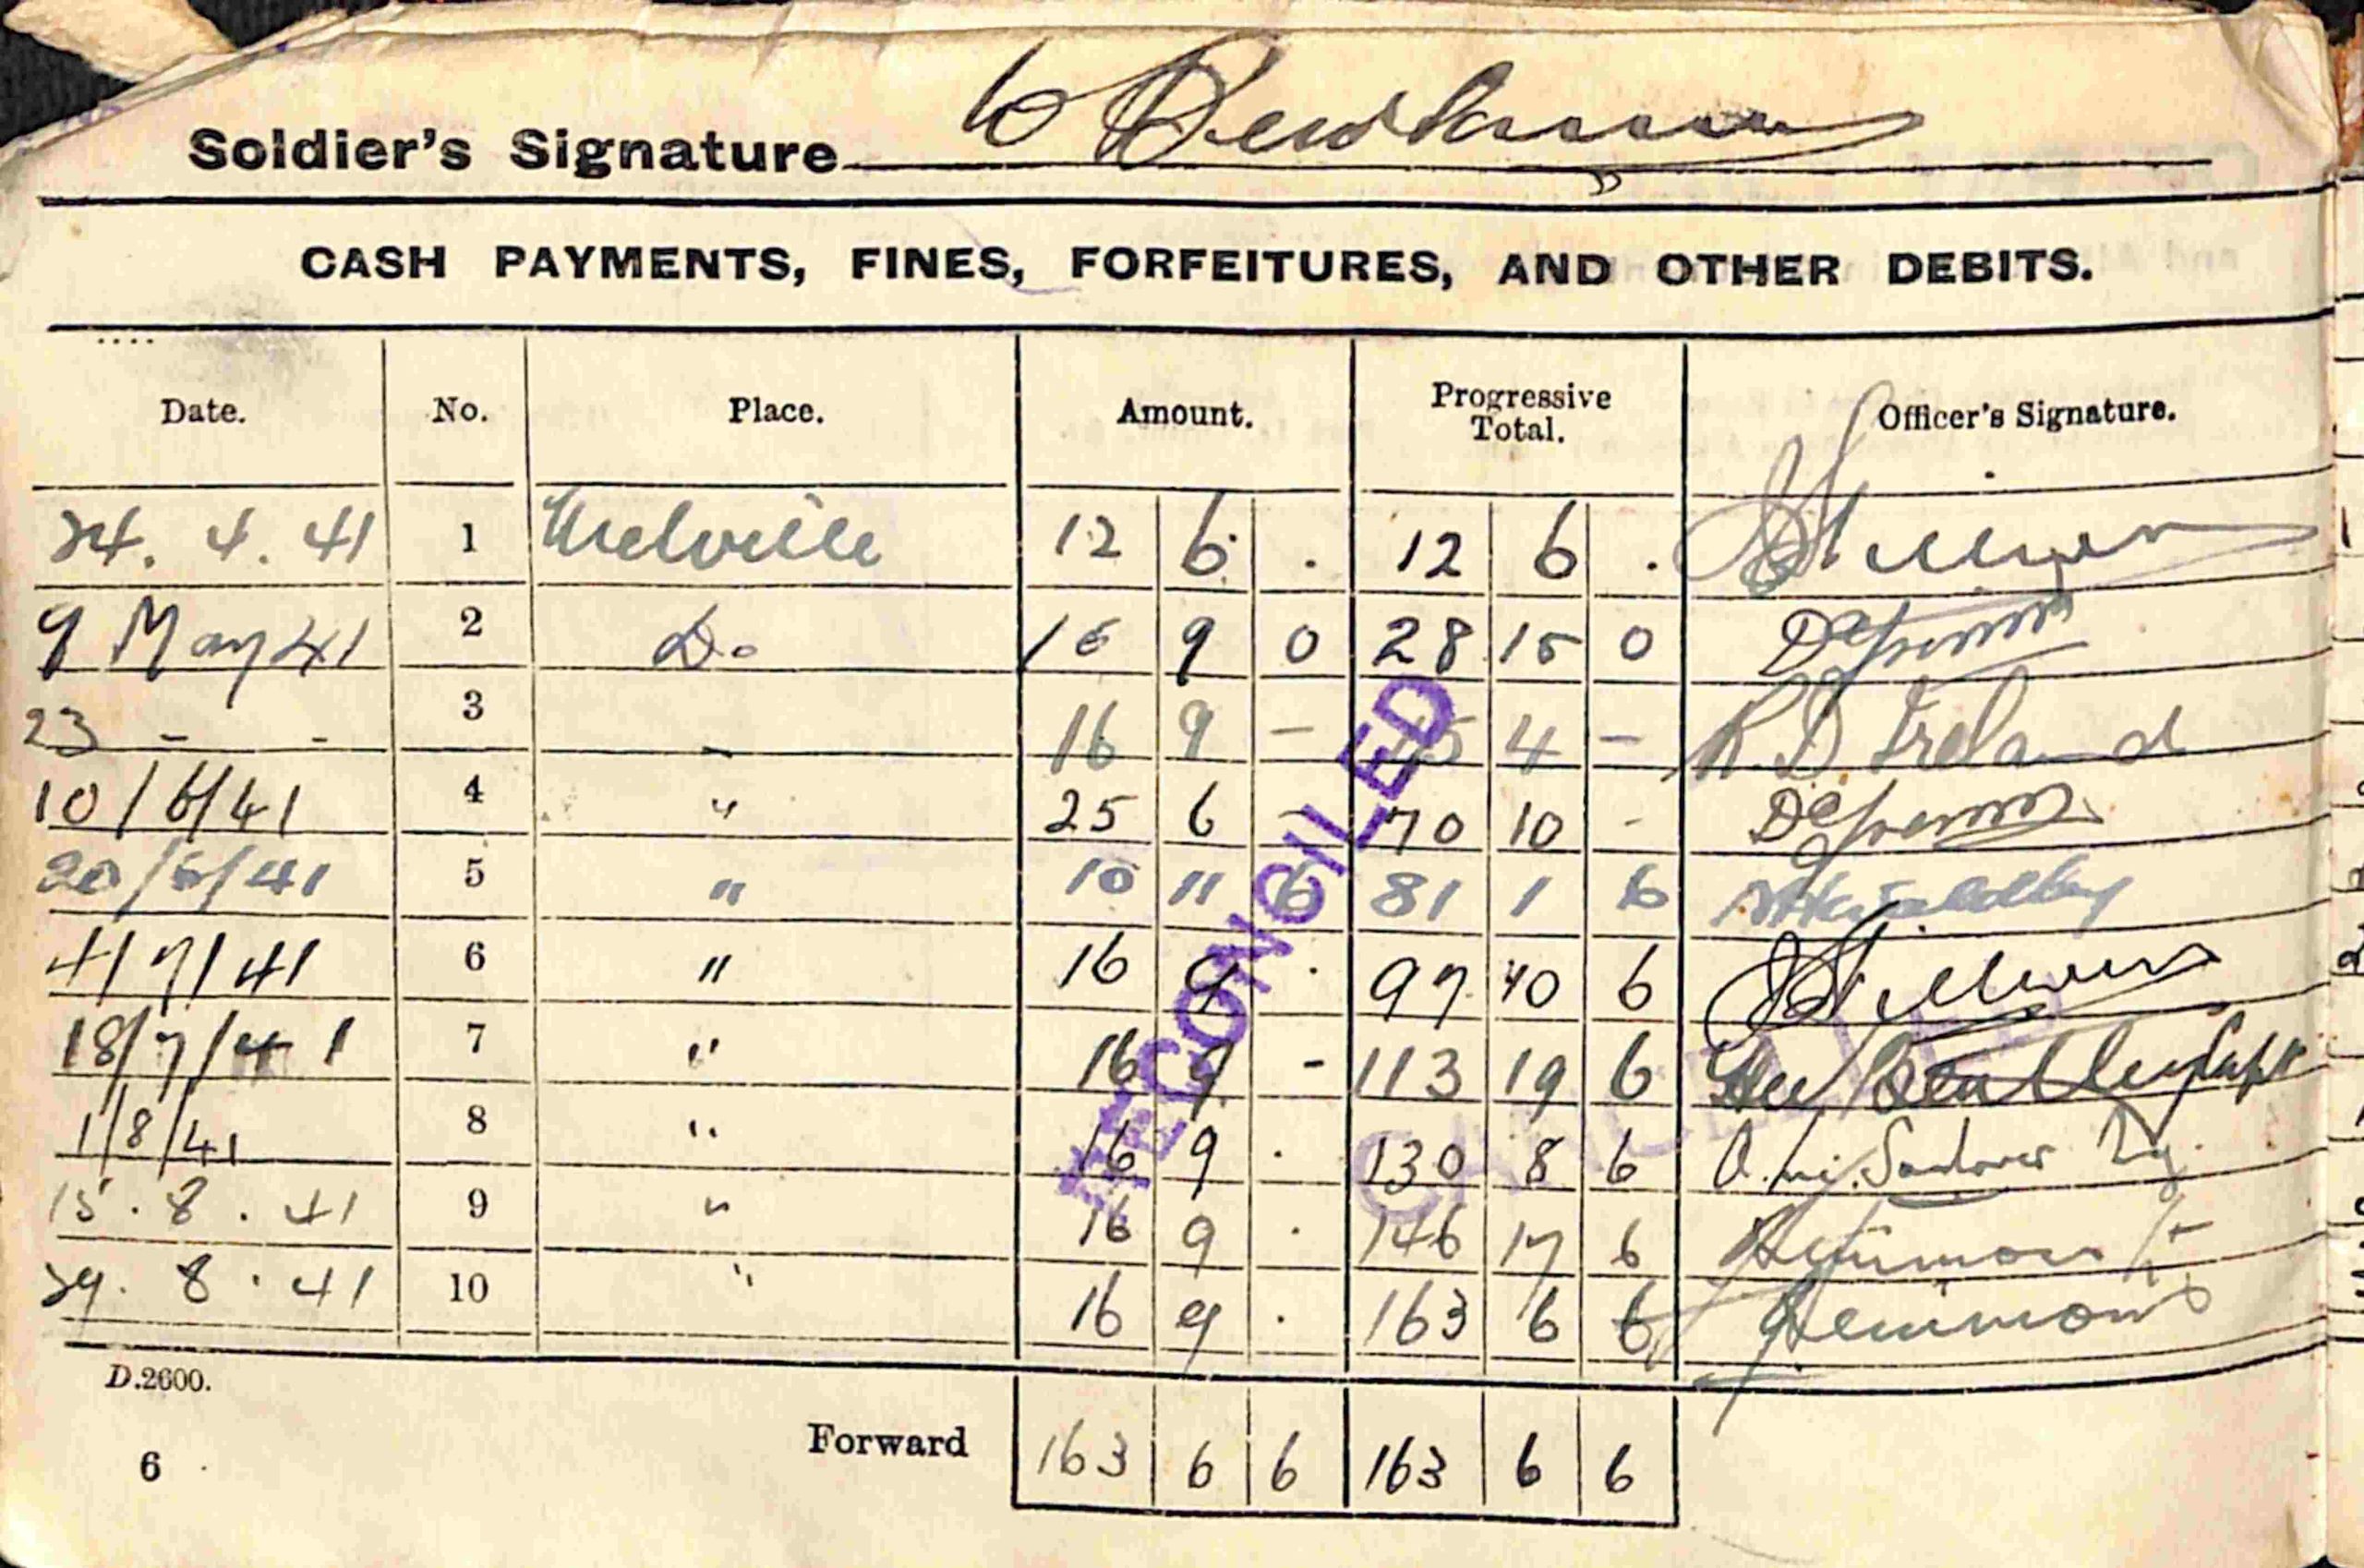 Soldier's Signature
CASH PAYMENTS, FINES, FORFEITURES, AND OTHER DEBITS.
Date. No. Place. Amount. Progressive Total. Officer's Signature.
24. 4. 41 1 Melville 12 6 . 12 6 .
9 May 41 2 Do 16 9 0 28 15 0
23 - - 3 - 16 9 - 45 4 - R. D Ireland
10/6/41 4 " 25 6 - 70 10 -
20/6/41 5 " 10 11 6 81 1 6
4/7/41 6 " 16 9 . 97 10 6
18/7/41 7 " 16 9 - 113 19 6
1/8/41 8 " 16 9 . 130 8 6
15. 8. 41 9 " 16 9 . 146 17 6
29. 8. 41 10 " 16 9 . 163 6 6
RECONCILED
D.2600.
Forward 163 6 6 163 6 6
6